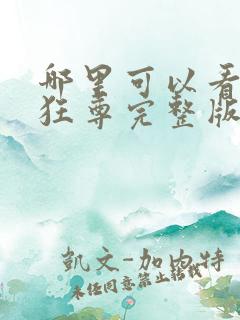 哪里可以看
狂尊完整版
凯文-加内特
未经同意禁止转载